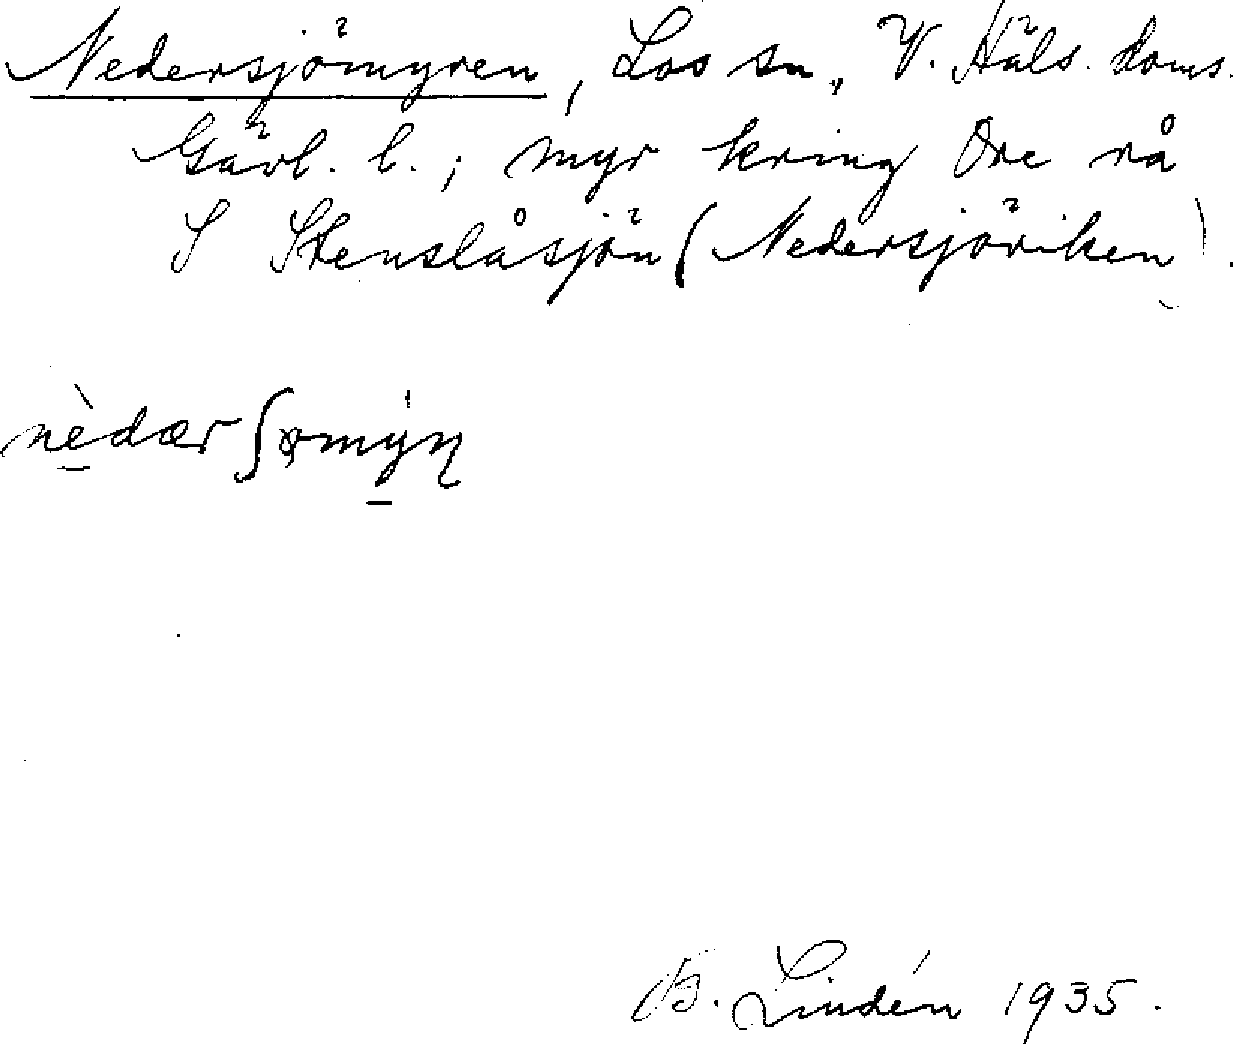 Nedersjömyren, Los sn, V. Häls. doms.
Gävl. l.; myr kring Ore rå
S Stenslåsjön (Nedersjöriken).
nèdær ʃømýɳ
B. Lindén 1935.